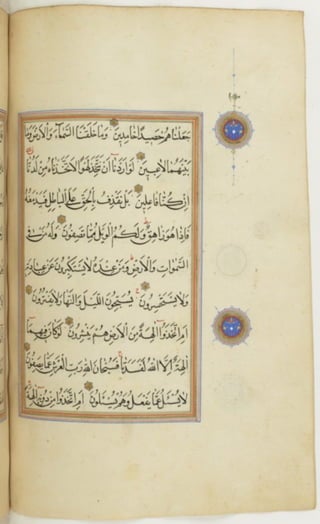 جعلناهم حصيدا خامدين وما خلقنا السماء والارض وما
بينهما لاعبين لو اردنا ان نتخذ لهوا لاتخذناه من لدنا
ان كنا فاعلين بل نقذف بالحق على الباطل فيدمغه
فاذا هو زاهق ولكم الويل مما تصفون وله من في
السموات والارض ومن عنده لا يستكبرون عن عبادته
ولا يستحسرون يسبحون الليل والنهار لا يفترون
ام اتخذوا الهة من الارض هم ينشرون لو كان فيهما
الهة الا الله لفسدتا فسبحان الله رب العرش عما يصفون
لا يسئل عما يفعل وهم يسئلون ام اتخذوا من دونه الهة